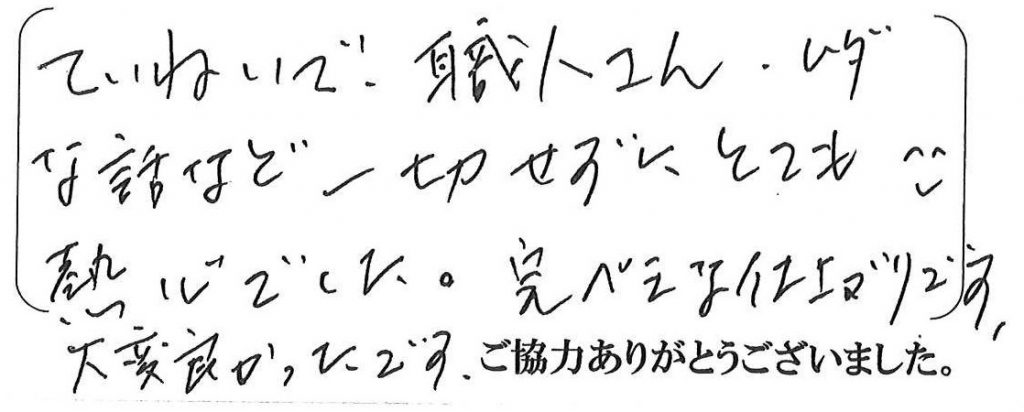 ていねいで、職人さん、ムダ
な話など一切せずにとても
熱心でした。完ペキな仕上がりです、
大変良かったです、ご協力ありがとうございました。